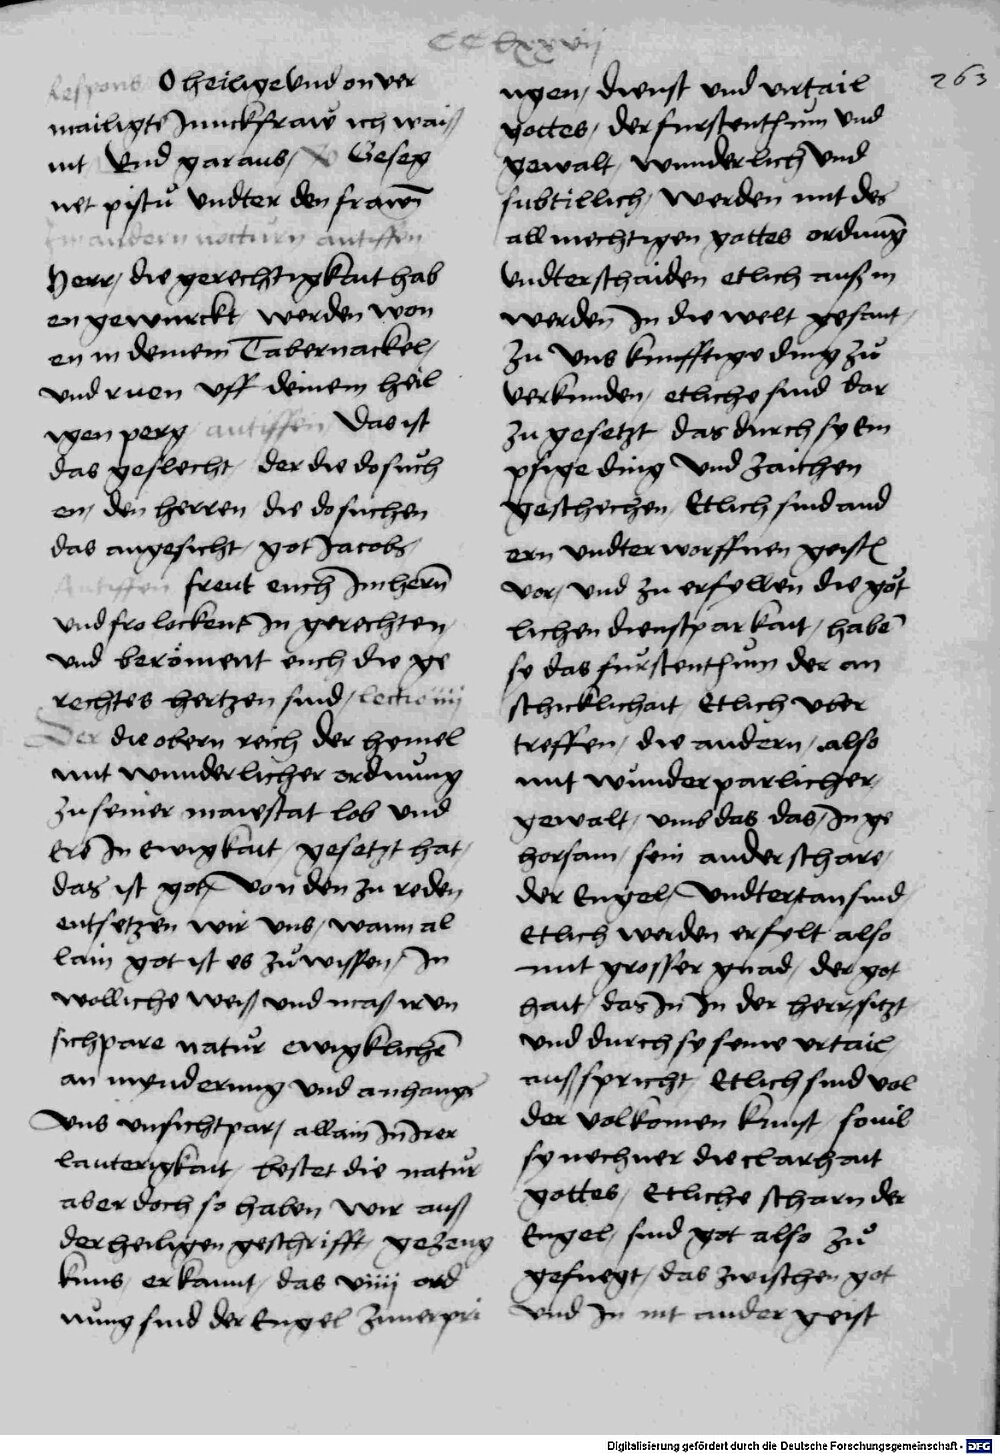 CClxxvij
263
Respons O heilige Vnd on ver
mailigte Junckfraw ich waiß
nit Vnd gar aus, V Geseg
net pistu Vndter den frawen
Im andern nocturn antiffen
Herr, die gerechtigkait hab
en gewurckt, werden won
en in deinem Tabernackel,
vnd ruen vff deinem heil
igen perg, antiffen, Das ist
das geslecht, der die do such
en, den herren die do suchen
das angesicht, got Jacobs,
Antiffen freut euch Im hern
vnd frolockent In gerechten,
vnd beröment euch die ge
rechtes hertzen sind, lectio iiij
Der die obern reich der hymel
mit wunderlicher ordnung
zu seiner maiestat lob vnd
Ere In Ewigkait, gesetzt hat,
das ist got, Von den zu reden
entsetzen wir vns, wann al
lain got ist es zu wissen, In
wolliche weiß vnd mass ir vn
sichpare natur ewigklichen
an mynderung vnd anhangs
vns vnsichtpar, allain In Irer
lauterigkait, bestet die natur
aber doch so haben wir auß
der heiligen geschrifft, gezeug
knus, erkannt, das viiij ord
nung sind der Engel zuuerpri
ngen, dienst vnd vrtail
gottes, der furstenthum vnd
gewalt, wunderlich Vnd
subtillich, werden mit des
allmechtigen gottes ordnung
vndterschaiden etlich auß in
werden In die welt gesant,
zu vns kunfftige ding zu
verkunden, etliche sind dar
zu gesetzt das durch sy Em
psige ding Vnd zaichen
geschechen, Etlich sind and
ern vndterworffnen geistl
vor, vnd zu erfyllen die göt
lichen dienstparkait, haben
sy das furstenthum der an
schicklichait, Etlich vber
treffen, die andern, also
mit wunderparlicher,
gewalt, vmb das das, In ge
horsam, sein ander schare,
der Engel, Vndtertan sind,
Etlich werden erfylt also
mit grosser gnad, der got
hait, das In In der herr, sitzt
vnd durch sy seine vrtail,
außspricht, Etlich sind vol
der volkomen kunst, souil
sy nechner die clarhait
gottes, Etliche scharn der
Engel, sind got also zu
gefuegt, das zwischen got
vnd In nit ander geist
Digitalisierung gefördert durch die Deutsche Forschungsgemeinschaft - DFG